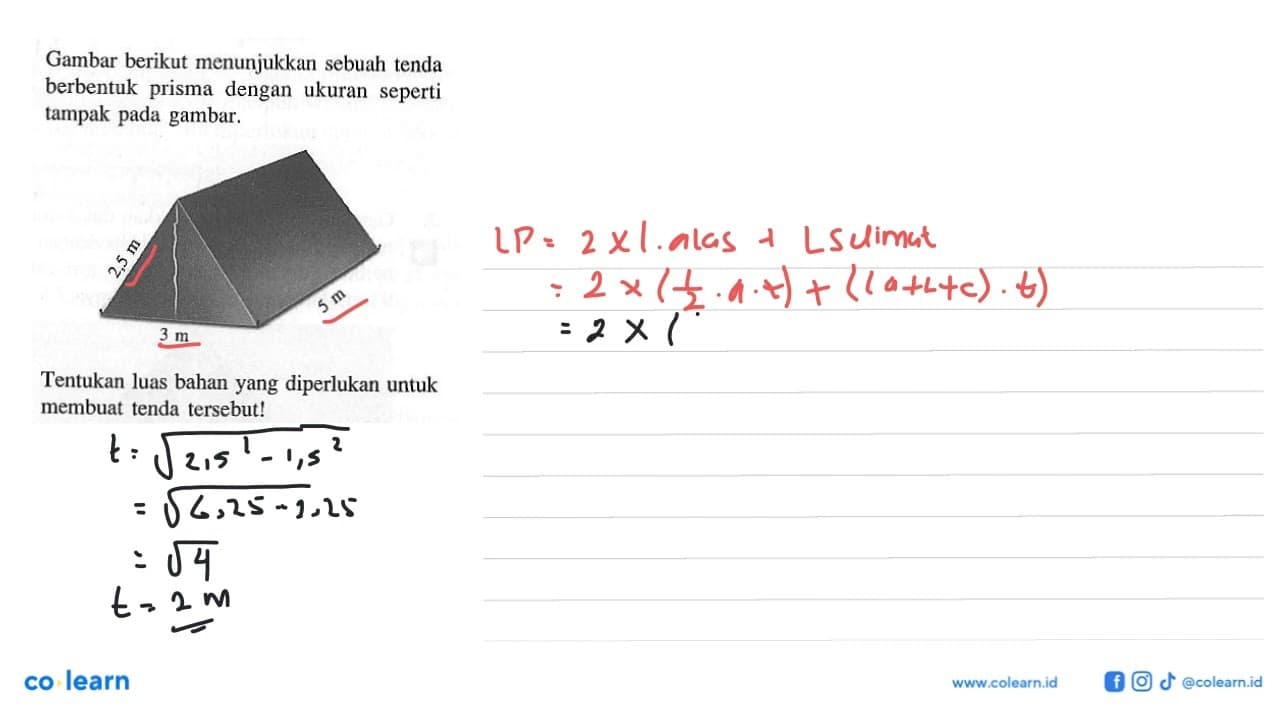 Gambar berikut menunjukkan sebuah tenda
berbentuk prisma dengan ukuran seperti
tampak pada gambar.
2,5 m
5 m
3 m
Tentukan luas bahan yang diperlukan untuk
membuat tenda tersebut!
t = √2,5² - 1,5²
= √6,25 - 2,25
= √4
t = 2 m
LP = 2 x l. alas + L Slimut
= 2 x (1/2 . a . t) + ((a+b+c) . t)
= 2 x (
co learn
www.colearn.id
@colearn.id